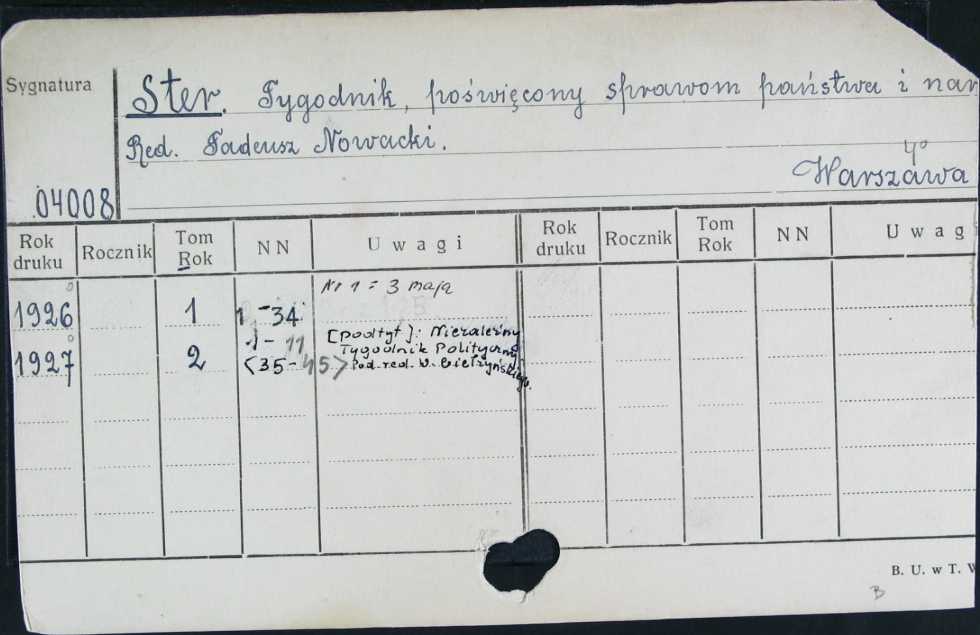 Sygnatura
Ster. Tygodnik, poświęcony sprawom państwa i nar
Red. Tadeusz Nowacki.
4°
Warszawa
04008
Rok druku Rocznik Tom Rok NN Uwagi Rok druku Rocznik Tom Rok NN Uwagi
Nr 1 = 3 maja
1926 1 1-34
[podtyt]: Niezależny
1-11
Tygodnik Polityczny
1927 2 <35-45> Pod. red. W. Giełżyńskiego.
B. U. w T. W
B